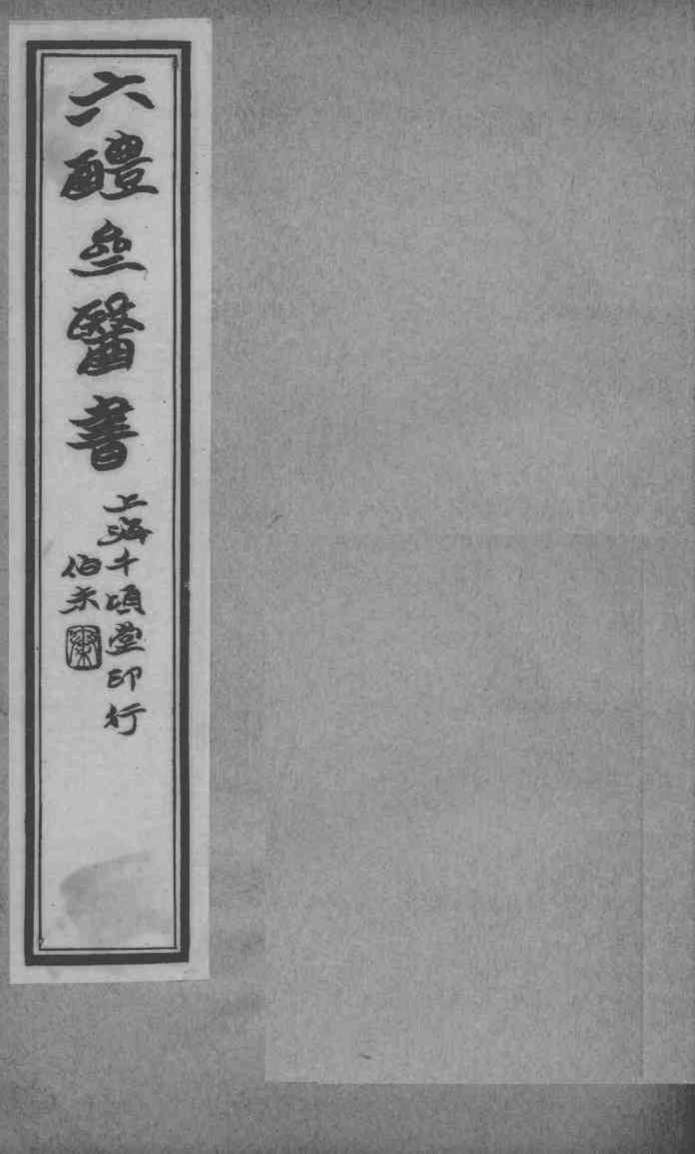 六醴亝醫書
上海千頃堂印行
伯未
秦